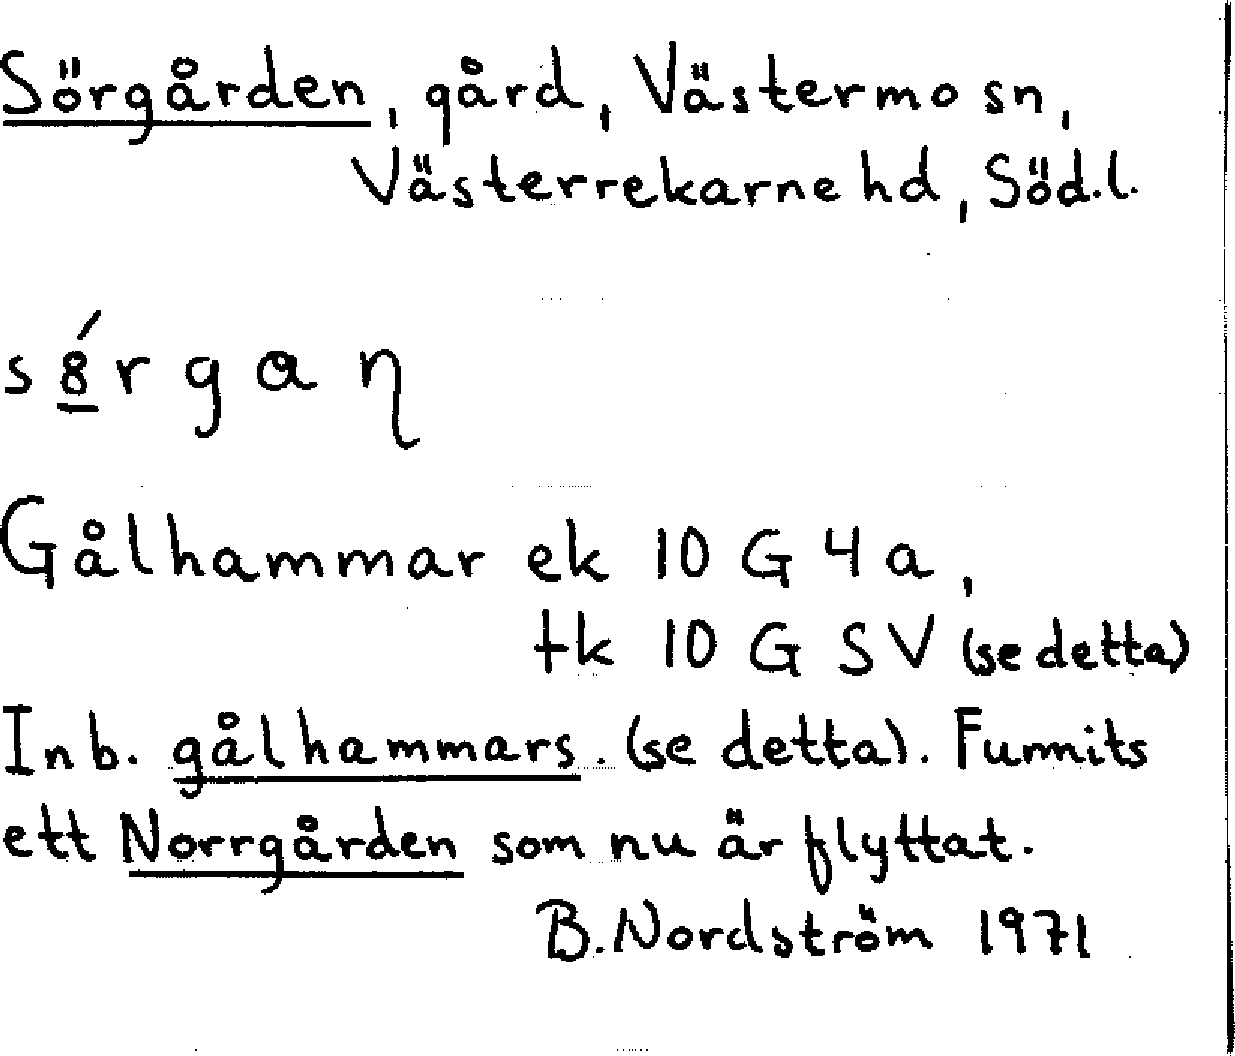 Sörgården, gård, Västermo sn,
Västerrekarne hd, Söd.l.
Gålhammar ek 10 G 4a,
tk 10 G SV (se detta)
Inb. gålhammars. (se detta). Funnits
ett Norrgården som nu är flyttat.
B. Nordström 1971